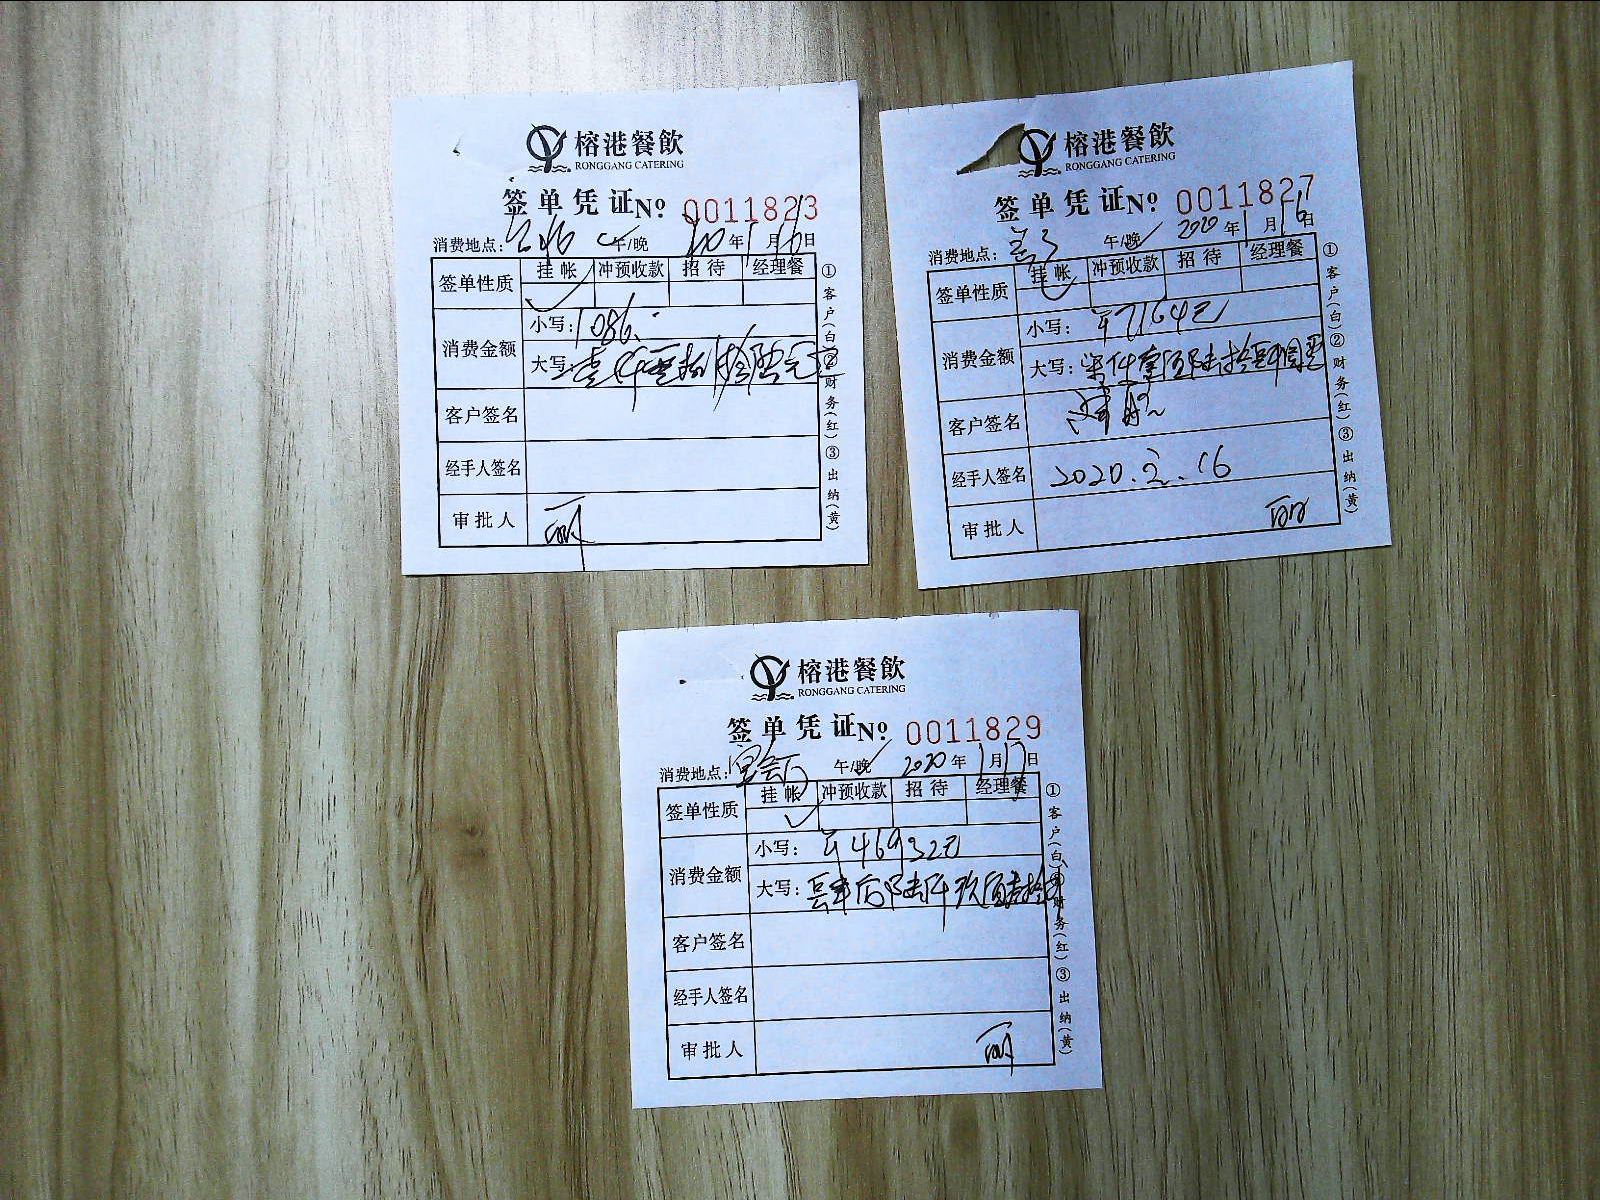 榕港餐飲
RONGGANG CATERING
签单凭证 No 0011823
消费地点： 午/晚 20年1月16日
签单性质 挂帐 冲预收款 招待 经理餐
消费金额
小写：1086.
大写：壹仟零捌拾陆元
客户签名
经手人签名
审批人
①客户(白)②财务(红)③出纳(黄)
榕港餐飲
RONGGANG CATERING
签单凭证 No 0011827
消费地点： 午/晚 2020年1月16日
签单性质 挂帐 冲预收款 招待 经理餐
消费金额
小写：¥7164元
大写：柒仟壹佰陆拾肆圆
客户签名
经手人签名 2020.2.16
审批人
①客户(白)②财务(红)③出纳(黄)
榕港餐飲
RONGGANG CATERING
签单凭证 No 0011829
消费地点：宴会厅 午/晚 2020年1月17日
签单性质 挂帐 冲预收款 招待 经理餐
消费金额
小写：¥46932元
大写：肆万陆仟玖佰叁拾
客户签名
经手人签名
审批人
①客户(白)②财务(红)③出纳(黄)